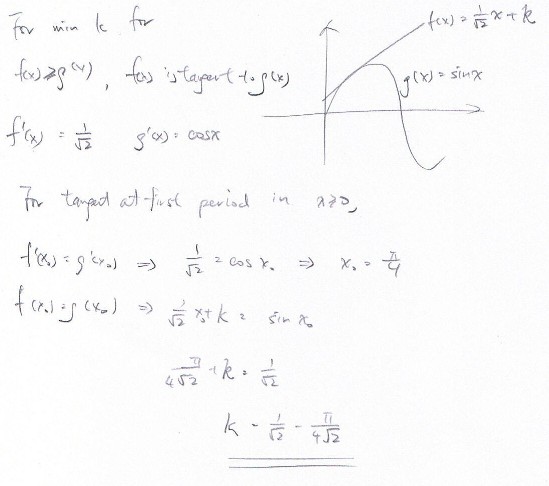 For min k for
f(x) ≥ g(x), f(x) is tangent to g(x)
f(x) = 1/√2 x + k
g(x) = sin x
f'(x) = 1/√2 g'(x) = cosx
For tangent at first period in x≥0,
f'(x₀) = g'(x₀) ⇒ 1/√2 = cos x₀ ⇒ x₀ = π/4
f(x₀) = g(x₀) ⇒ 1/√2 x₀ + k = sin x₀
π/4√2 + k = 1/√2
k = 1/√2 - π/4√2